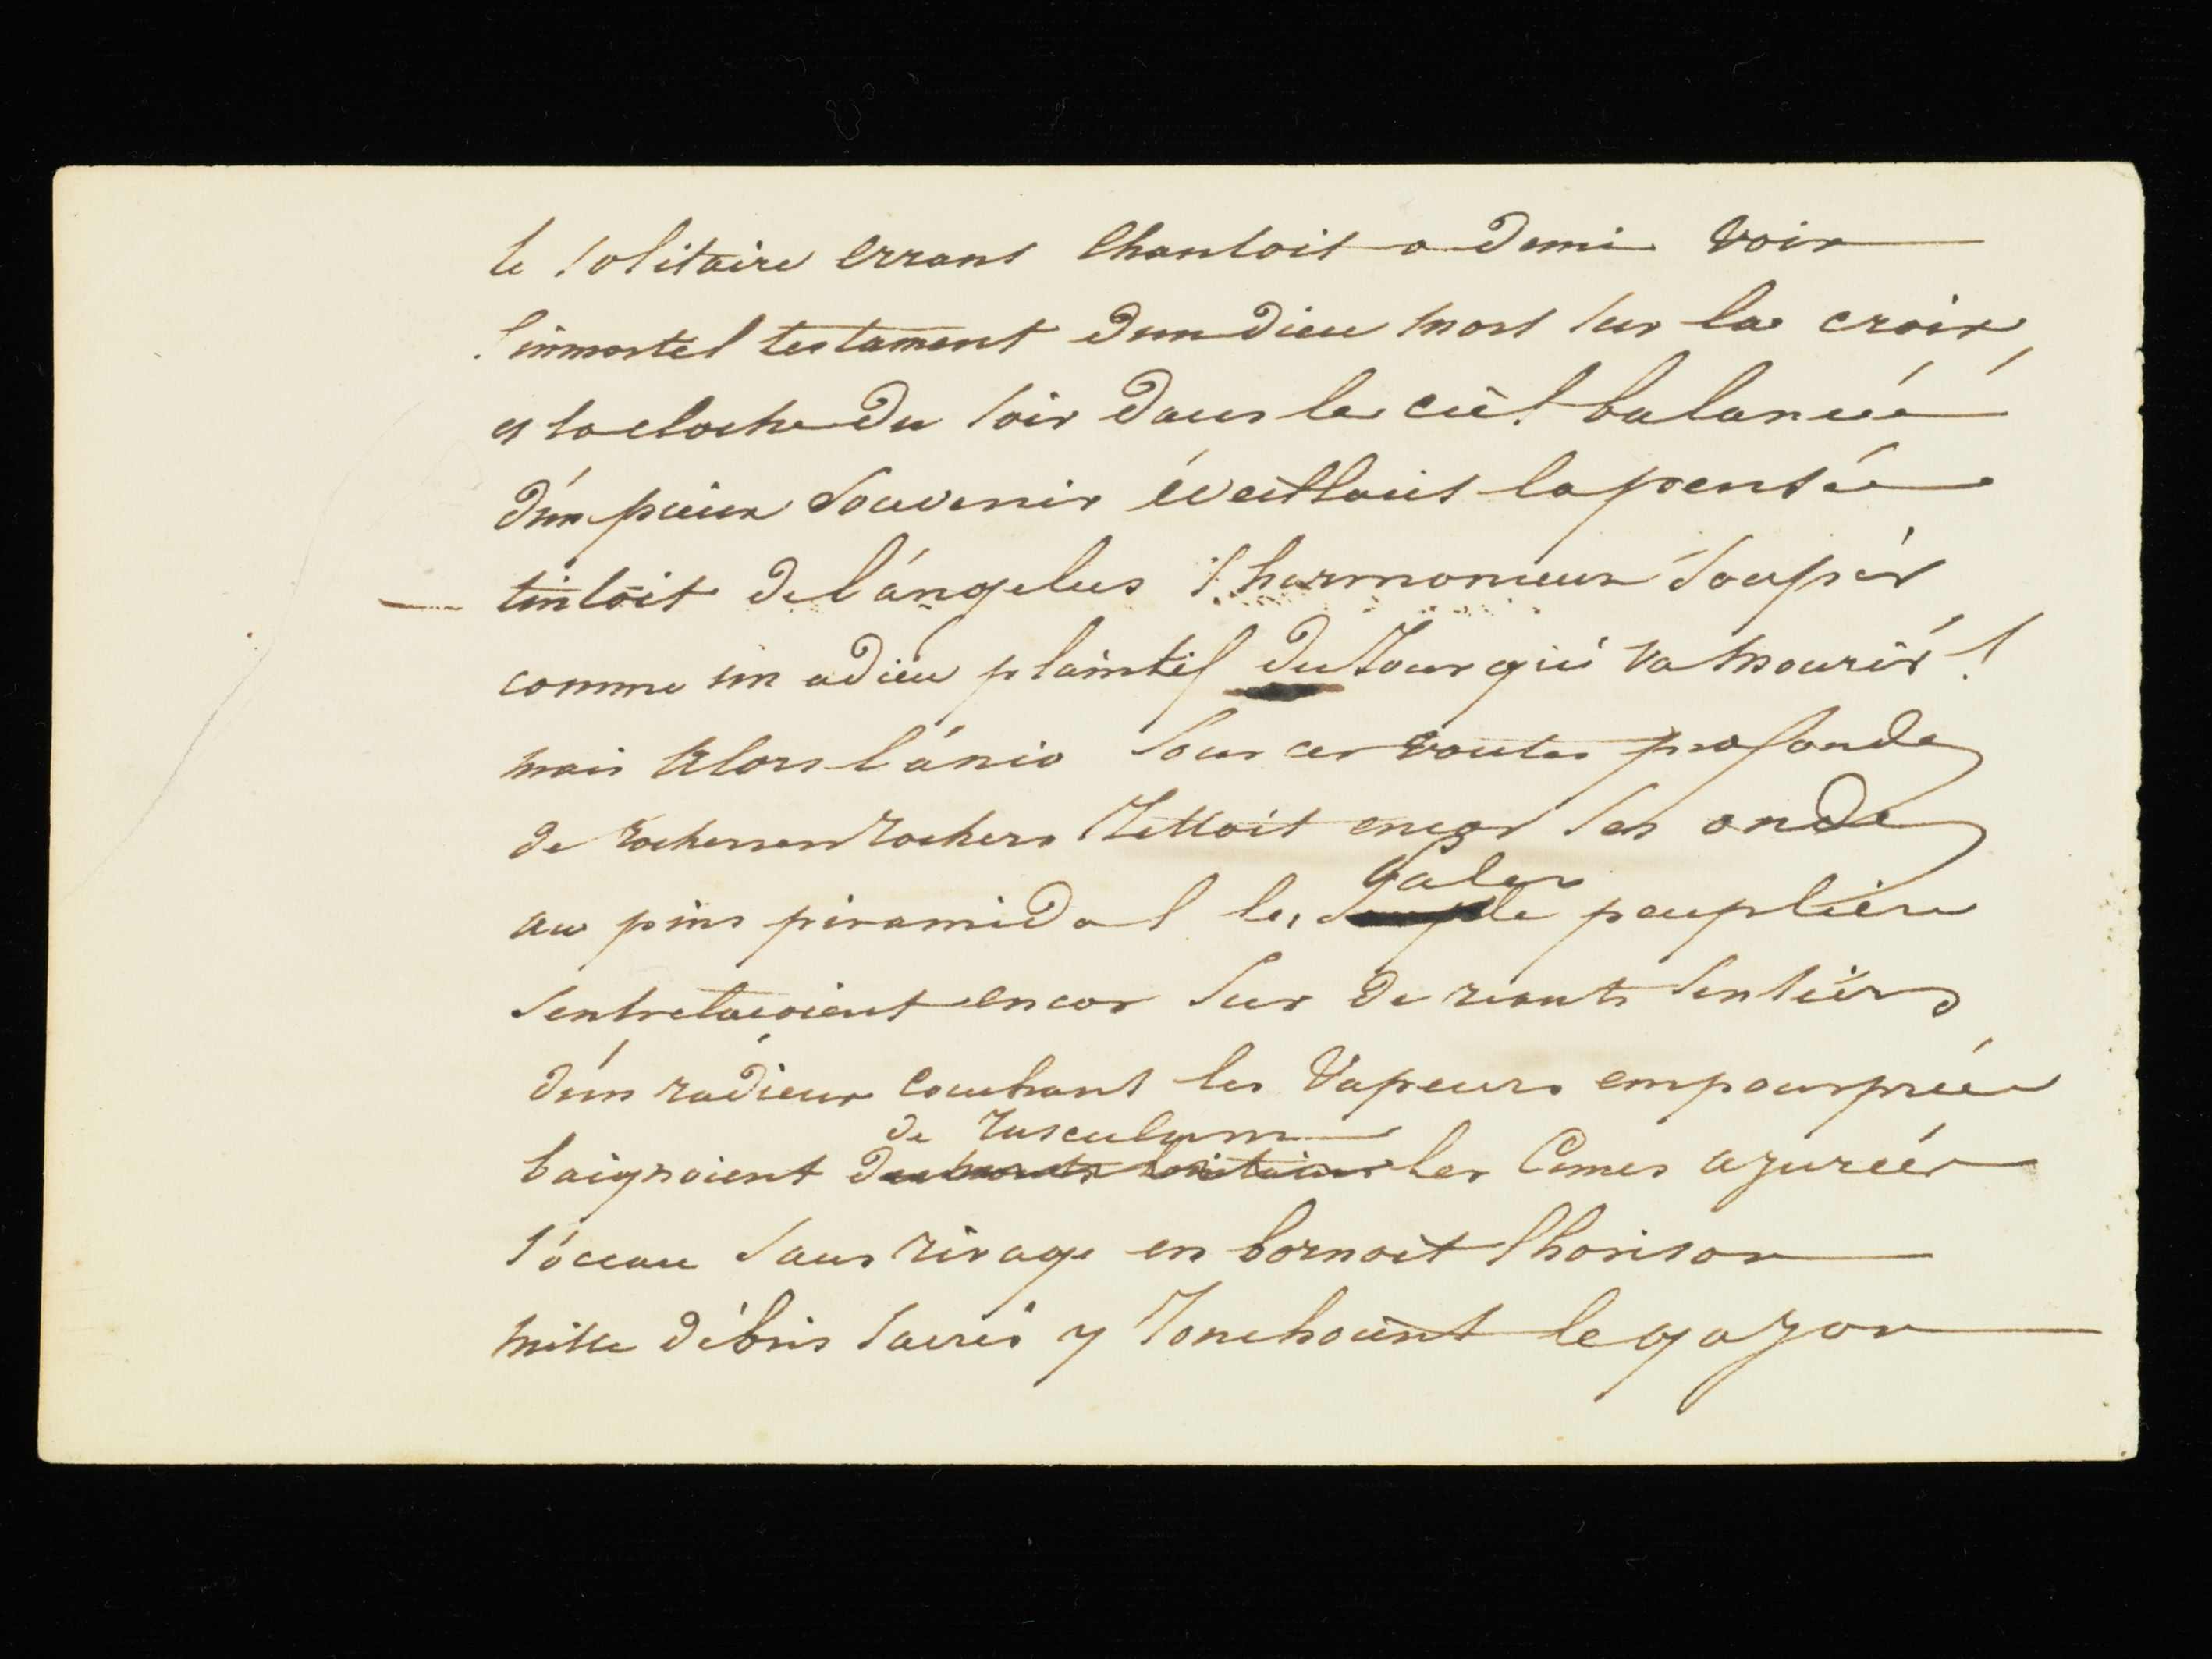 le solitaire errant chantoit a demi voix
l'immortel testament dun dieu mort sur la croix,
et la cloche du soir dans le ciel balancéé
d'un pieux souvenir éveilloit la pensée
— tintoit de l'ángelus l'harmonieux soupir
comme un adieu plaintif du Jour qui va mourir !
mais alors l'ánio sous ces voutes profondes
de rochers en rochers Jettoit encor ses ondes
pales
au pins piramidal les peupliers
s'entrelacoient encor sur de riants sentiers
d'un radieux couchant les vapeurs empourprées
de Tusculum
baignoient des monts lointains les Cimes azuréés
l'ócean sans rivage en bornoit lhorison
mille débris sacrés y Jonchoient le gazon